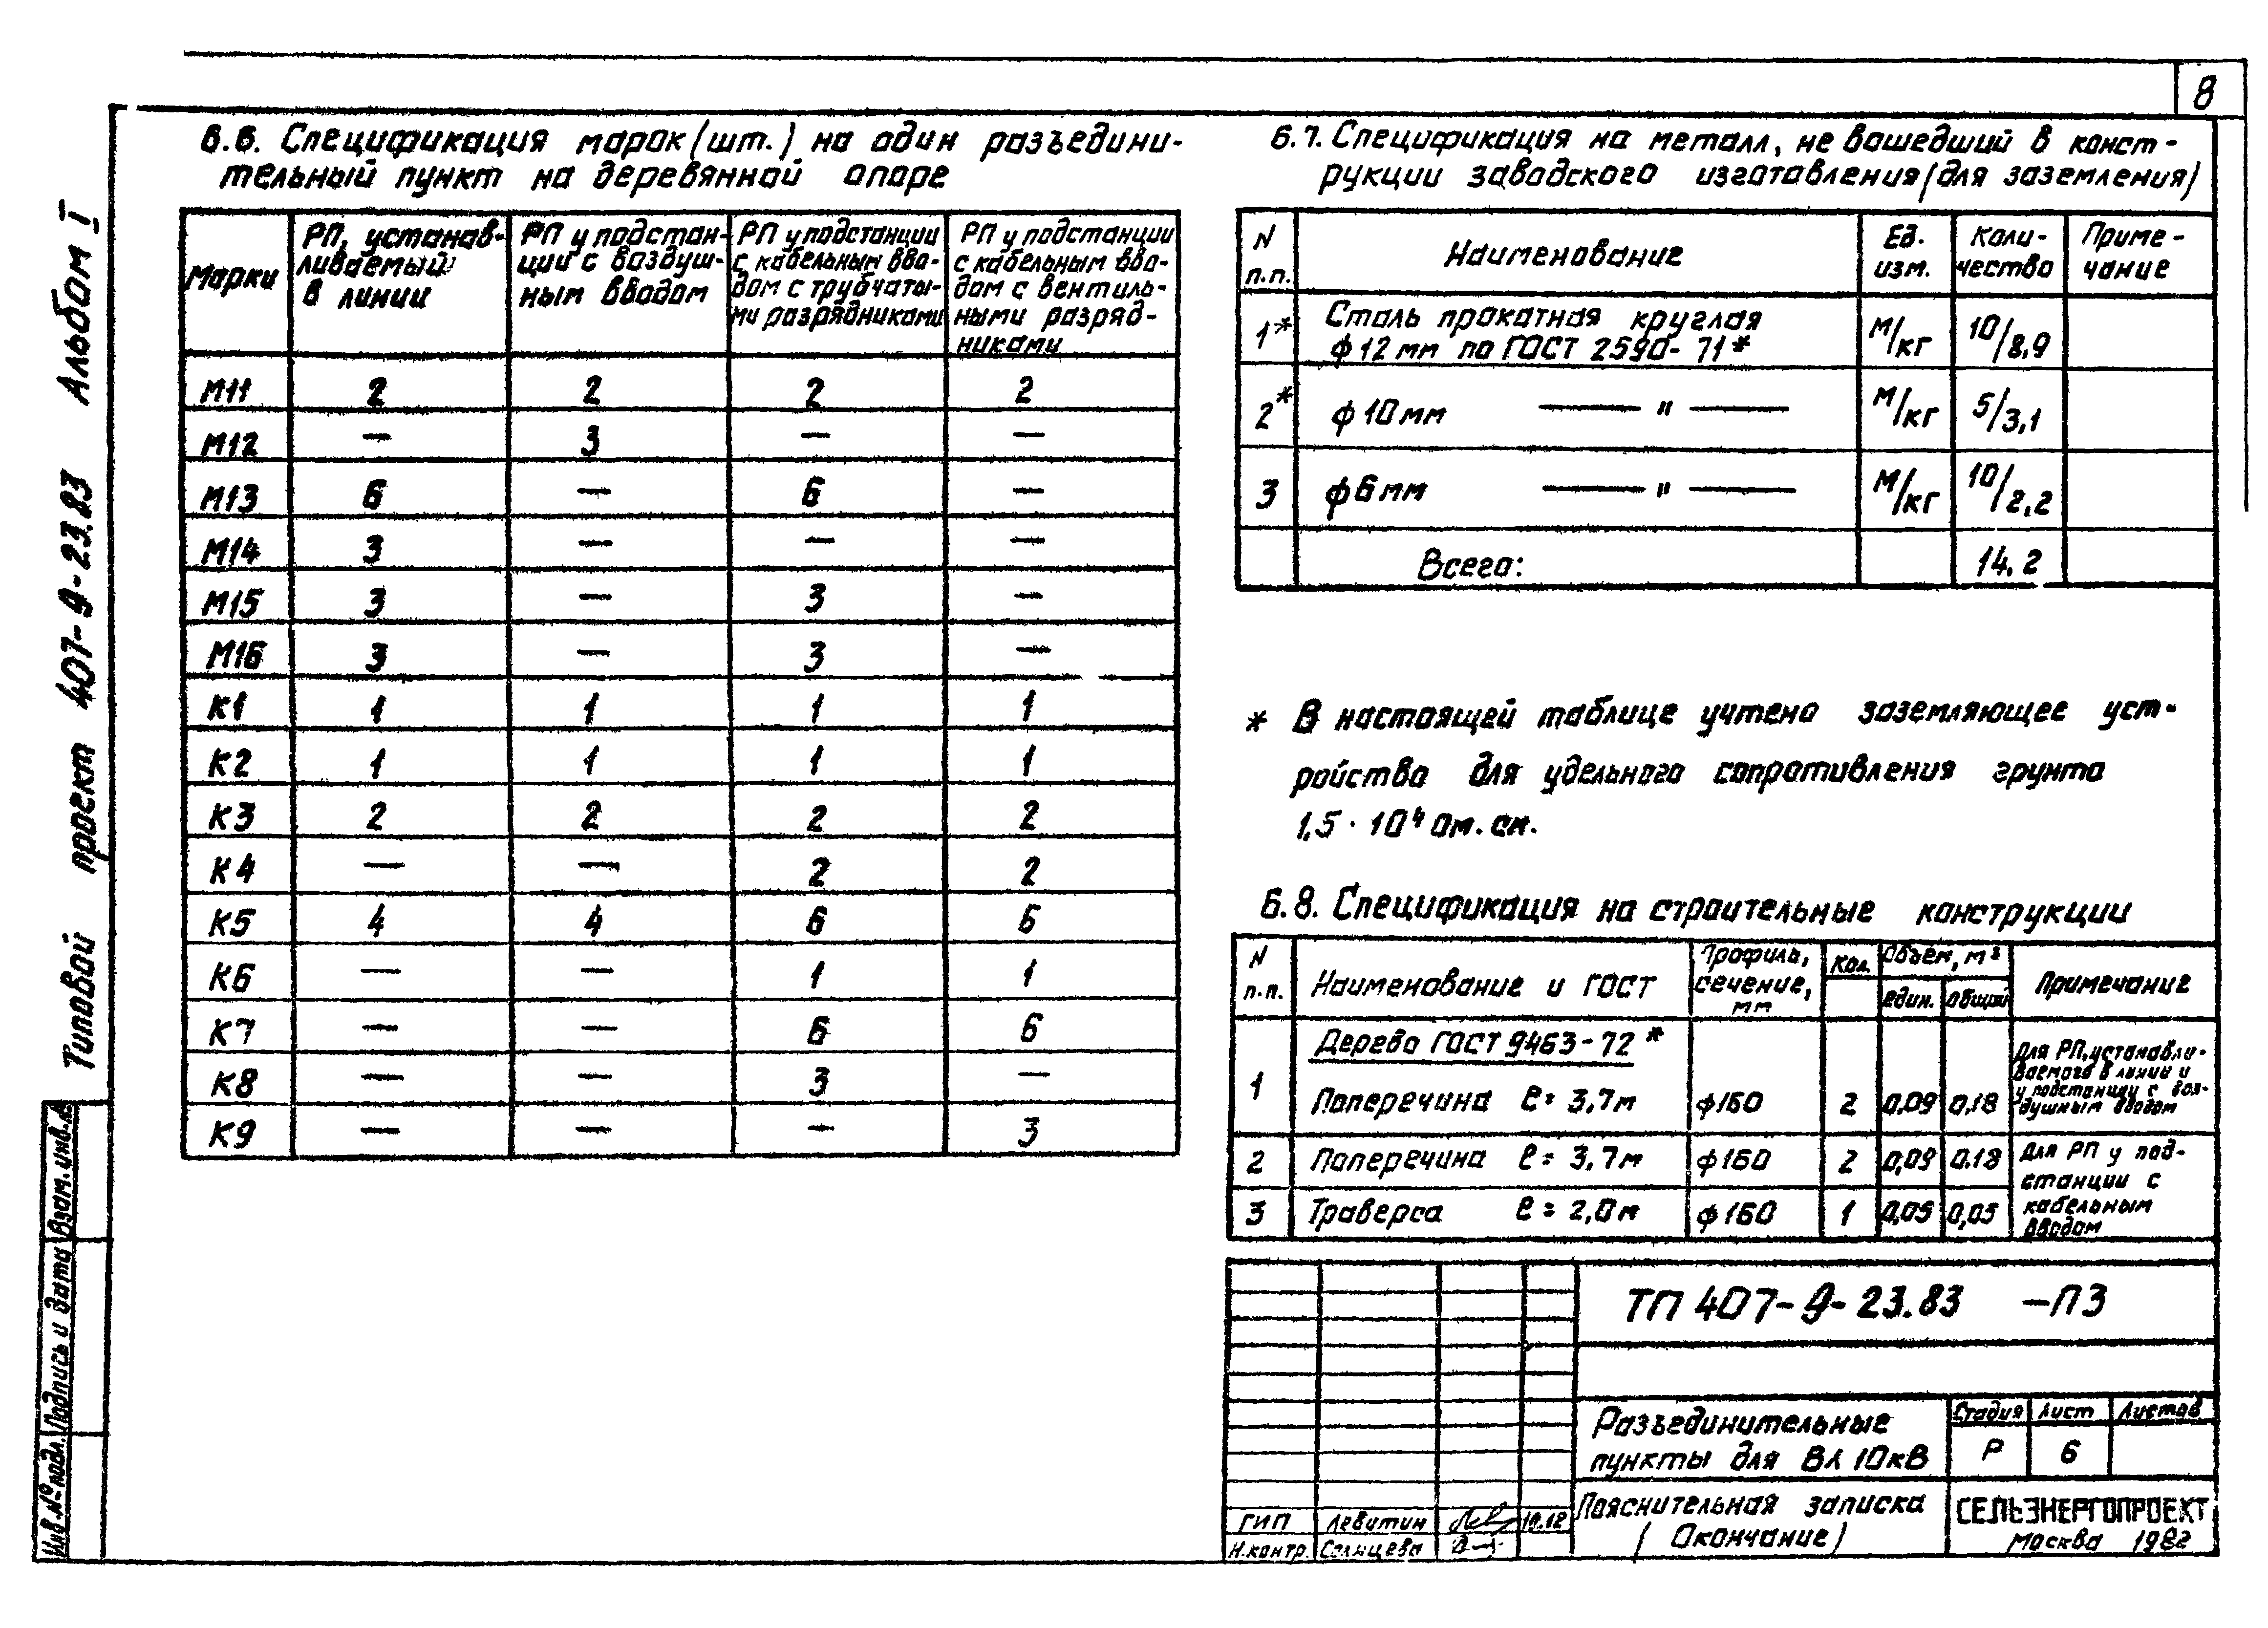 8
Типовой проект 407-9-23.83 Альбом I
6.6. Спецификация марок (шт.) на один разъедини-
тельный пункт на деревянной опоре
Марки
РП, устанав-
ливаемый
в линии
РП у подстан-
ции с воздуш-
ным вводом
РП у подстанции
с кабельным вво-
дом с трубчаты-
ми разрядниками
РП у подстанции
с кабельным вво-
дом с вентиль-
ными разряд-
никами
М11 2 2 2 2
М12 — 3 — —
М13 6 — 6 —
М14 3 — — —
М15 3 — 3 —
М16 3 — 3 —
К1 1 1 1 1
К2 1 1 1 1
К3 2 2 2 2
К4 — — 2 2
К5 4 4 6 6
К6 — — 1 1
К7 — — 6 6
К8 — — 3 —
К9 — — — 3
6.7. Спецификация на металл, не вошедший в конст-
рукции заводского изготавления (для заземления)
N
п.п.
Наименование
Ед.
изм.
Коли-
чество
Приме-
чание
1* Сталь прокатная круглая
ф12 мм по ГОСТ 2590-71* м/кг 10/8,9
2* ф10мм — " — м/кг 5/3,1
3 ф6мм — " — м/кг 10/2,2
Всего: 14,2
* В настоящей таблице учтено заземляющее уст-
ройство для удельного сопротивления грунта
1,5 · 10⁴ Ом.см.
6.8. Спецификация на строительные конструкции
N
п.п.
Наименование и ГОСТ
Профиль,
сечение,
мм
Кол.
Объем, м³
един. общий
Примечание
Дерево ГОСТ 9463-72*
1 Поперечина ℓ= 3,7м ф160 2 0,09 0,18
Для РП, устанавли-
ваемого в линии и
у подстанции с воз-
душным вводом
2 Поперечина ℓ= 3,7м ф160 2 0,09 0.18
3 Траверса ℓ= 2,0м ф160 1 0,05 0,05
Для РП у под-
станции с
кабельным
вводом
ТП 407-9-23.83 -ПЗ
Разъединительные
пункты для ВЛ 10кВ
Стадия Лист Листов
Р 6
Пояснительная записка
(Окончание)
СЕЛЬЭНЕРГОПРОЕКТ
Москва 1982г
ГИП Левитин
Н.контр. Солнцева
Инв.№ подл. Подпись и дата Взам.инв.№